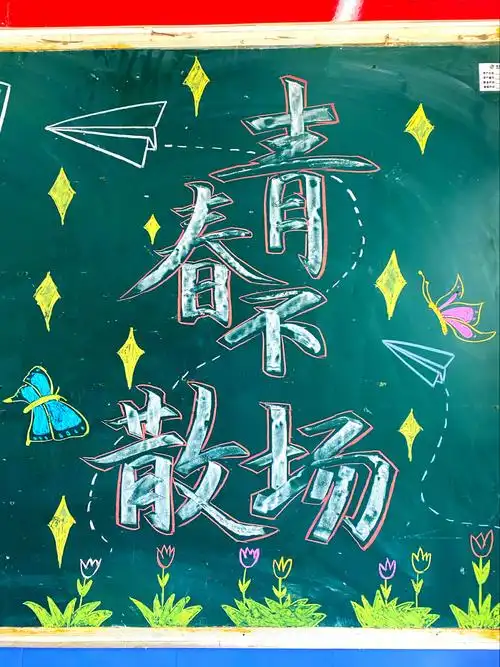 青
春
不
散场